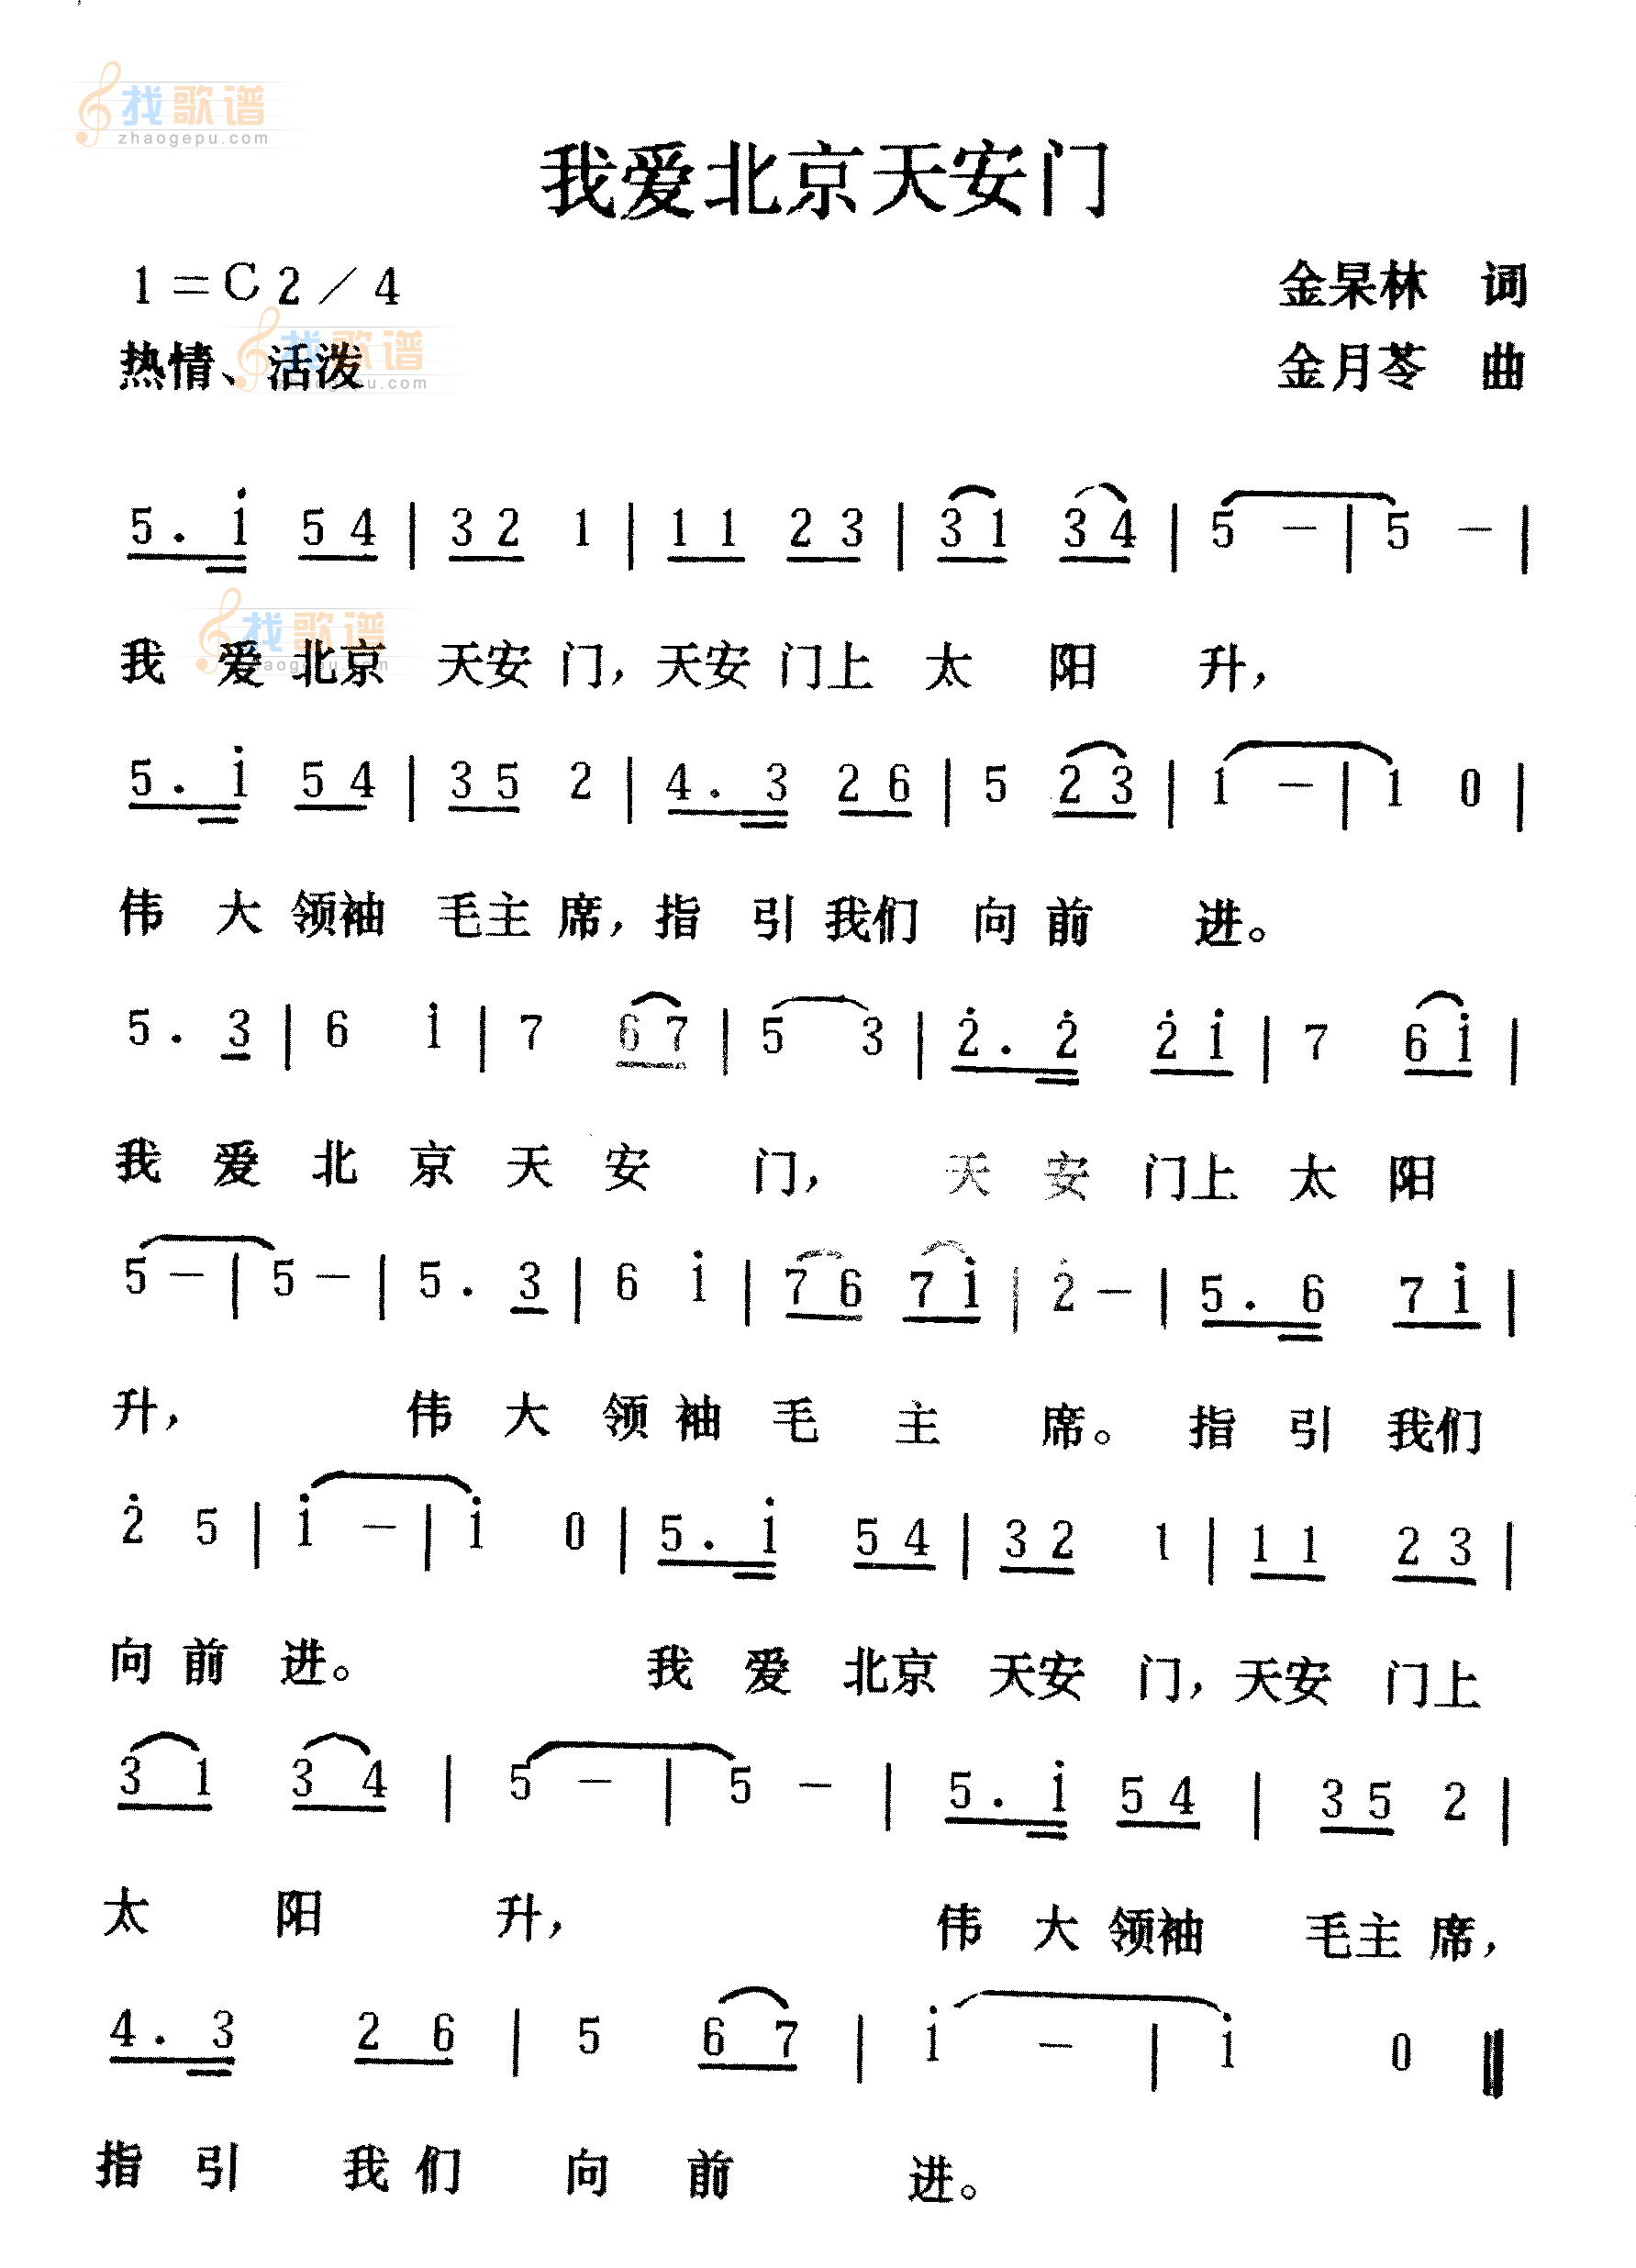 找歌谱
zhaogepu.com
我爱北京天安门
1=C 2/4
金杲林 词
热情、活泼
找歌谱
zhaogepu.com
金月苓 曲
5. i 5 4 | 3 2 1 | 1 1 2 3 | 3 1 3 4 | 5 - | 5 - |
找歌谱
zhaogepu.com
我 爱 北京 天安 门，天安 门上 太 阳 升，
5. i 5 4 | 3 5 2 | 4. 3 2 6 | 5 2 3 | 1 - | 1 0 |
伟 大 领袖 毛主 席，指 引 我们 向 前 进。
5. 3 | 6 i | 7 6 7 | 5 3 | 2̇. 2̇ 2̇ i | 7 6 i |
我 爱 北 京 天 安 门， 天 安 门上 太 阳
5 - | 5 - | 5. 3 | 6 i | 7 6 7 i | 2̇ - | 5. 6 7 i |
升， 伟 大 领 袖 毛 主 席。指 引 我们
2̇ 5 | i - | i 0 | 5. i 5 4 | 3 2 1 | 1 1 2 3 |
向 前 进。 我 爱 北京 天安 门，天安 门上
3 1 3 4 | 5 - | 5 - | 5. i 5 4 | 3 5 2 |
太 阳 升， 伟 大 领袖 毛主 席，
4. 3 2 6 | 5 6 7 | i - | i 0 ‖
指 引 我 们 向 前 进。